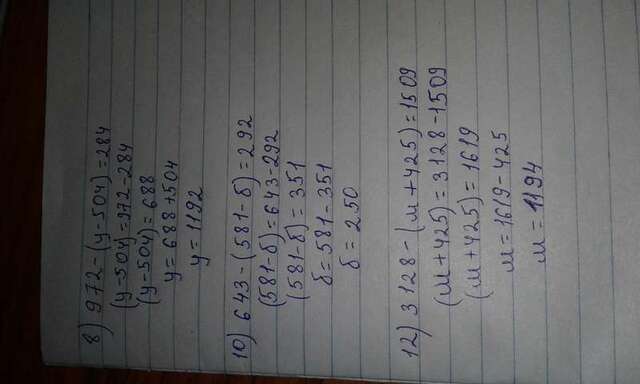 8) 972-(у-504)=284
(у-504)=972-284
(у-504)=688
у=688+504
у=1192
10) 643-(581-б)=292
(581-б)=643-292
(581-б)=351
б=581-351
б=250
12) 3128-(м+425)=1509
(м+425)=3128-1509
(м+425)=1619
м=1619-425
м=1194